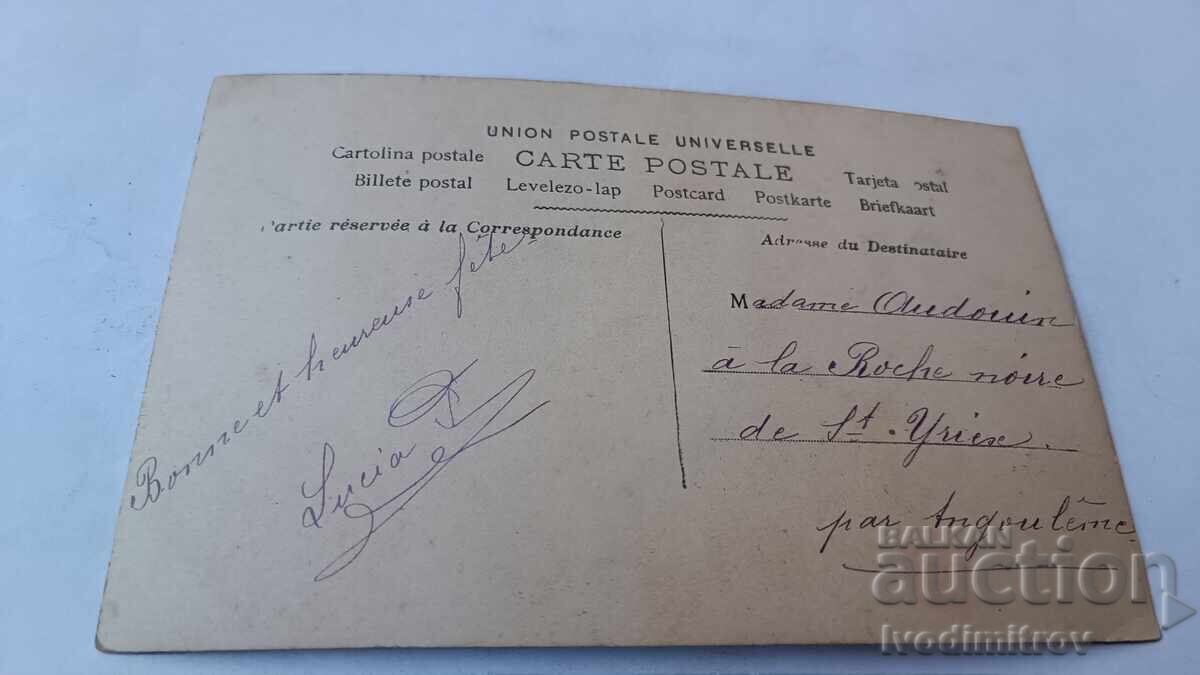 UNION POSTALE UNIVERSELLE
Cartolina postale CARTE POSTALE Tarjeta ostal
Billete postal Levelezo-lap Postcard Postkarte Briefkaart
artie réservée à la Correspondance
Bonne et heureuse fête
Lucia
Adresse du Destinataire
Madame Audouin
à la Roche noire
de St. Yriex.
par Angoulême
BALKAN
auction
Ivodimitrov